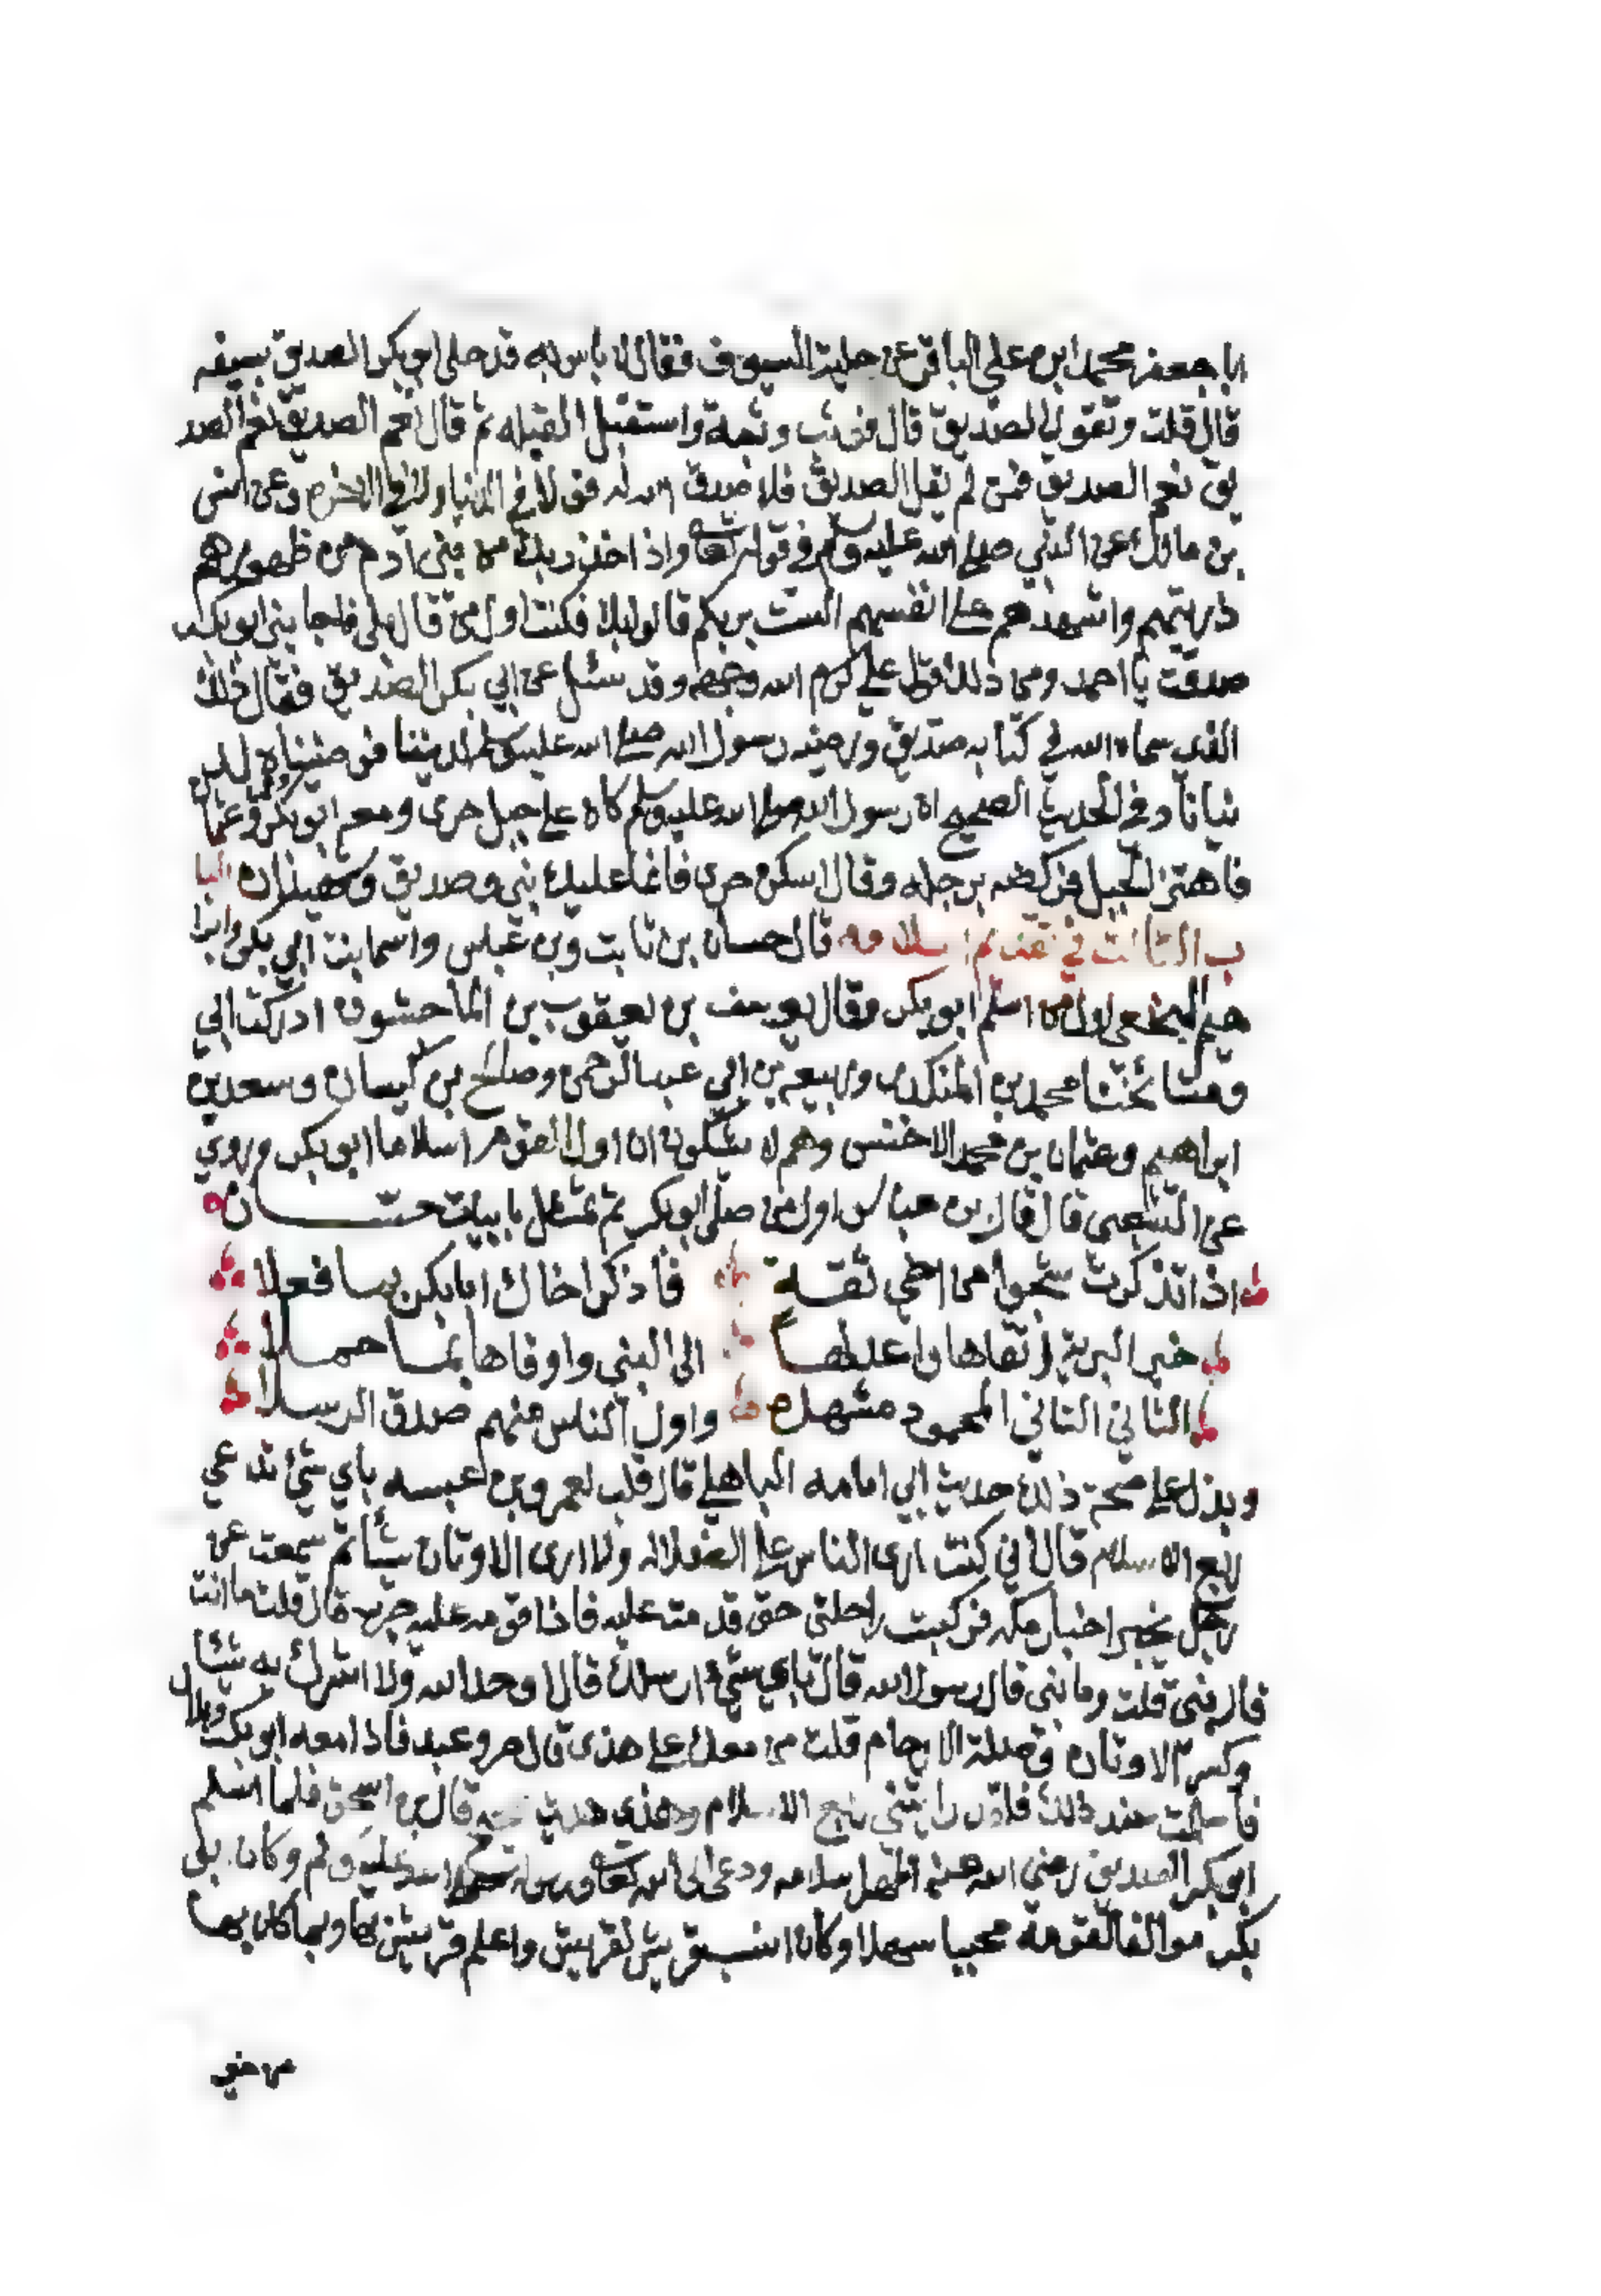 ابا جعفر محمد ابن علي الباقر عن حلية السيوف فقال لا باس به قد حلى ابو بكر الصديق بسيفه
قال قلت وتقول الصديق قال فوثب وثبة واستقبل القبله ثم قال نعم الصديق نعم الصد
يق نعم الصديق فمن لم يقل الصديق فلا صدق الله له قولا في الدنيا ولا في الاخره وعن انس
بن مالك عن النبي صلى الله عليه وسلم في قوله تعالى واذ اخذ ربك من بني ادم من ظهورهم
ذريتهم واشهدهم على انفسهم الست بربكم قالوا بلا فكنت اول من قال بلى فلجابني ابو بكر
صدقت يا احمد ومن ذلك قول علي كرم الله وجهه وقد سئل عن ابي بكر الصديق فقال ذلك
الذي سماه الله في كتابه صديق ورضيه رسول الله صلى الله عليه وسلم لديننا فرضيناه لد
نيانا وفي الحديث الصحيح ان رسول الله صلى الله عليه وسلم كان على جبل حرى ومعه ابو بكر وعمر
فاهتز الجبل فركضه برجله وقال اسكن حرى فانما عليك نبي وصديق وشهيدان البا
ب الثالث في تقدم اسلامه قال حسان بن ثابت وبن عباس واسما بنت ابي بكر وابرا
هيم النخعي اول من اسلم ابو بكر وقال يوسف بن يعقوب بن الماجشون ادركت ابي
ومشائخنا محمد بن المنكدر وربيعه بن ابي عبد الرحمن وصالح بن كيسان وسعد بن
ابراهيم وعثمان بن محمد الاخنسي وهم لا يشكون ان اول القوم اسلاما ابو بكر وروي
عن الشعبي قال قال بن عباس اول من صلى ابو بكر ثم تمثل بابيات حسان
اذا تذكرت شجوا من اخي ثقة فاذكر اخاك ابا بكر بما فعلا
خير البرية اتقاها واعدلها الى النبي واوفاها بما حملا
الثاني التاني المحمود مشهده واول الناس منهم صدق الرسلا
ويدل على صحة ذلك حديث ابي امامه الباهلي قال قلت لعمرو بن عبسه باي شئ تدعي
ربع الاسلام قال اني كنت ارى الناس على الضلاله ولا ارى الاوثان شيأ ثم سمعت عن
رجل يخبر اخبار مكه فركبت راحلتي حتى قدمت عليه فاذا قومه عليه جرء قال قلت ما انت
قال نبي قلت وما نبي قال رسول الله قال باي شئ ارسلك قال اوحد الله ولا اشرك به شيئا
وكسر الاوثان وصلة الارحام قلت من معك على هذى قال حر وعبد فاذا معه ابو بكر وبلال
فاسلمت عند ذلك فلقد رايتني ربع الاسلام وهذي حديث قال بن اسحق فلما اسلم
ابو بكر الصديق رضي الله عنه اظهر اسلامه ودعى الى الله تعالى ورسوله صلى الله عليه وسلم وكان
بكر موالفا لقومه محببا سهلا وكان انسب قريش لقريش واعلم قريش بها وبما كان بها
من خير